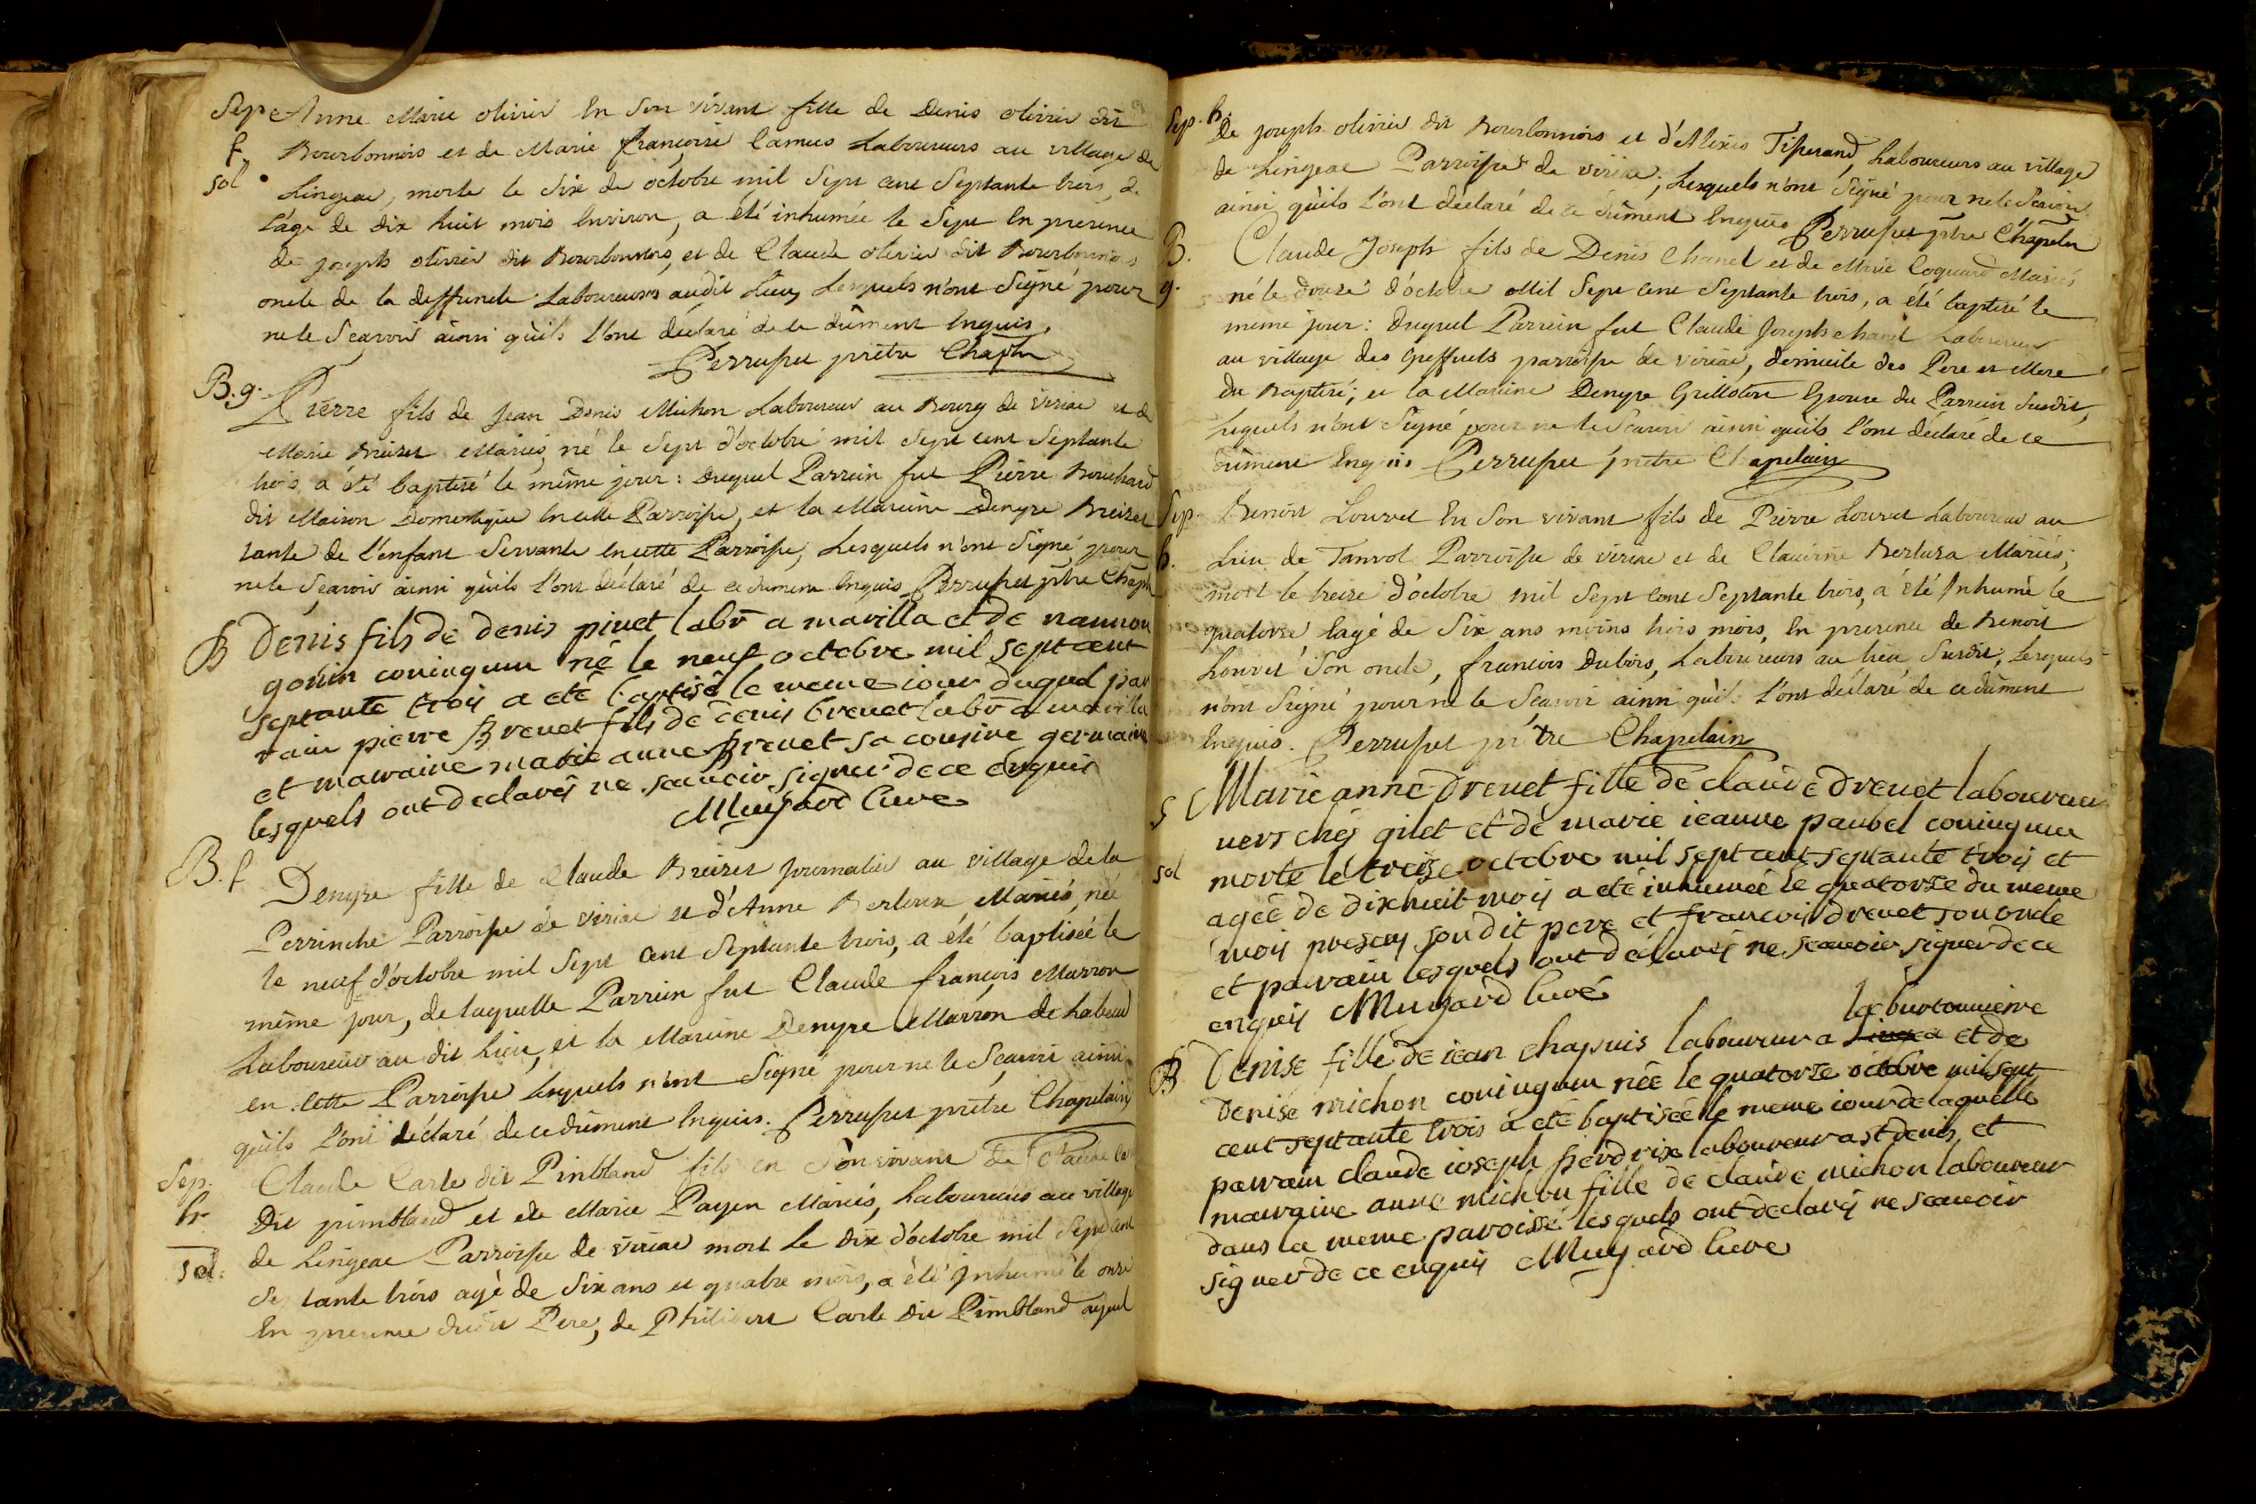 Sep Anne Marie olivier En Son vivant fille de Denis olivier dit
f. Bourbonnois et de Marie françoise Camus Laboureurs au village de
sol Lingeac, morte le Six de octobre mil Sept cent Septante trois, de
l'âge de dix huit mois Environ, a été inhumée le Sept En présence
de joseph olivier dit Bourbonnois, et de Claude olivier dit Bourbonnois
oncle de la deffunte Laboureurs audit Lieu, Lesquels n'ont Signé pour
ne le Scavoir ainsi qu'ils l'ont déclaré de ce dûment Enquis.
Perruset prêtre Chapln
B. g. Pierre fils de Jean Denis Michon Laboureur au Bourg de viriac et de
Marie Brevet Mariés, né le Sept d'octobre mil Sept cent Septante
trois a été baptisé le même jour : Duquel Parrein fut Pierre Bouchard
dit Maison Domestique En cette Parroisse, et la Mareine Denyse Breizet
tante de l'enfant Servante En cette Parroisse, Lesquels n'ont Signé pour
ne le Scavoir ainsi qu'ils l'ont déclaré de ce dument Enquis Perruset ptre Chapln
B Denis fils de denis pivet labr a marilla et de nannon
gonin coniugum né le neuf octobre mil sept cent
septante trois a eté baptisé le meme iour duquel par
rain pierre Brevet fils de denis brevet labr a marilla
et marraine marie anne Brevet sa cousine germaine
lesquels ont declarés ne scavoir signer de ce enquis
Muyard Curé
B. f Denyse fille de Claude Breizet journalier au village de la
Perrinche Parroisse de viriac et d'Anne Berloux Mariés, née
le neuf d'octobre mil Sept cent Septante trois, a été baptisée le
même jour, de laquelle Parrein fut Claude françois Marron
Laboureur au dit Lieu, et la Mareine Denyse Marron de
en cette Parroisse Lesquels n'ont Signé pour ne le Scavoir ainsi
qu'ils l'ont déclaré de ce dûment Enquis. Perruset prêtre Chapelain
Sep. Claude Carle dit Pimbland fils en Son vivant de Claude
h. Dit pimbland et de Marie Payen Mariés, Laboureurs au village
sol. de Lingeac Parroisse de viriac mort Le dix d'octobre mil Sept cent
Septante trois agé de Six ans et quatre mois, a été Inhumé le onze
En presence dudit Pere, de Philibert Carle dit Pimbland ayeul
Sep. h. de joseph olivier dit Bourbonnois et d'Alexis Tisserand, Laboureurs au village
de Lingeac Parroisse de viriac; Lesquels n'ont Signé pour ne le Scavoir
ainsi qu'ils l'ont déclaré de ce dûment Enquis Perruset ptre Chapeln
B. Claude Joseph fils de Denis Chanel et de Marie Coquard Mariés
g. né le douze d'octobre Mil Sept cent Septante trois, a été baptisé le
même jour : duquel Parrein fut Claude Joseph chanel Laboureur
au village des Greffiets parroisse de viriac, domicile des Pere et Mere
du Baptisé; et la Mareine Denyse Grilloton Epouse du Parrein Susdit,
Lesquels n'ont Signé pour ne le Scavoir ainsi qu'ils l'ont déclaré de ce
dûment Enquis Perruset prêtre Chapelain
Sep. Benoit Louvet En Son vivant fils de Pierre Louvet Laboureur au
h. Lieu de Tanvol Parroisse de viriac et de Claudine Mariés;
mort le treize d'octobre mil Sept cent Septante trois, a été Inhumé le
quatorze l'agé de Six ans moins trois mois, En presence de Benoit
Louvet Son oncle, francois Dubois, Laboureurs au lieu Susdit; Lesquels
n'ont Signé pour ne le Scavoir ainsi qu'ils l'ont déclaré de ce dûment
Enquis. Perruset prêtre Chapelain
S Marie anne drevet fille de claude drevet laboureur
vers chés gilet et de marie ieanne paubel coniugum
sol morte le treize octobre mil sept cent septante trois et
agée de dix huit mois a eté inhumée le quatorze du meme
mois presens son dit pere et francois drevet son oncle
et parrain lesquels ont déclarés ne scavoir signer de ce
enquis Muyard Curé
la burtonniere
B Denise fille de iean chapuis laboureur a et de
denise michon coniugum née le quatorze octobre mil sept
cent septante trois a eté baptisée le meme iour de laquelle
parrain claude ioseph perdrix laboureur a st denis, et
marraine anne michon fille de claude michon laboureur
dans la meme paroisse lesquels ont declarés ne scavoir
signer de ce enquis Muyard Curé